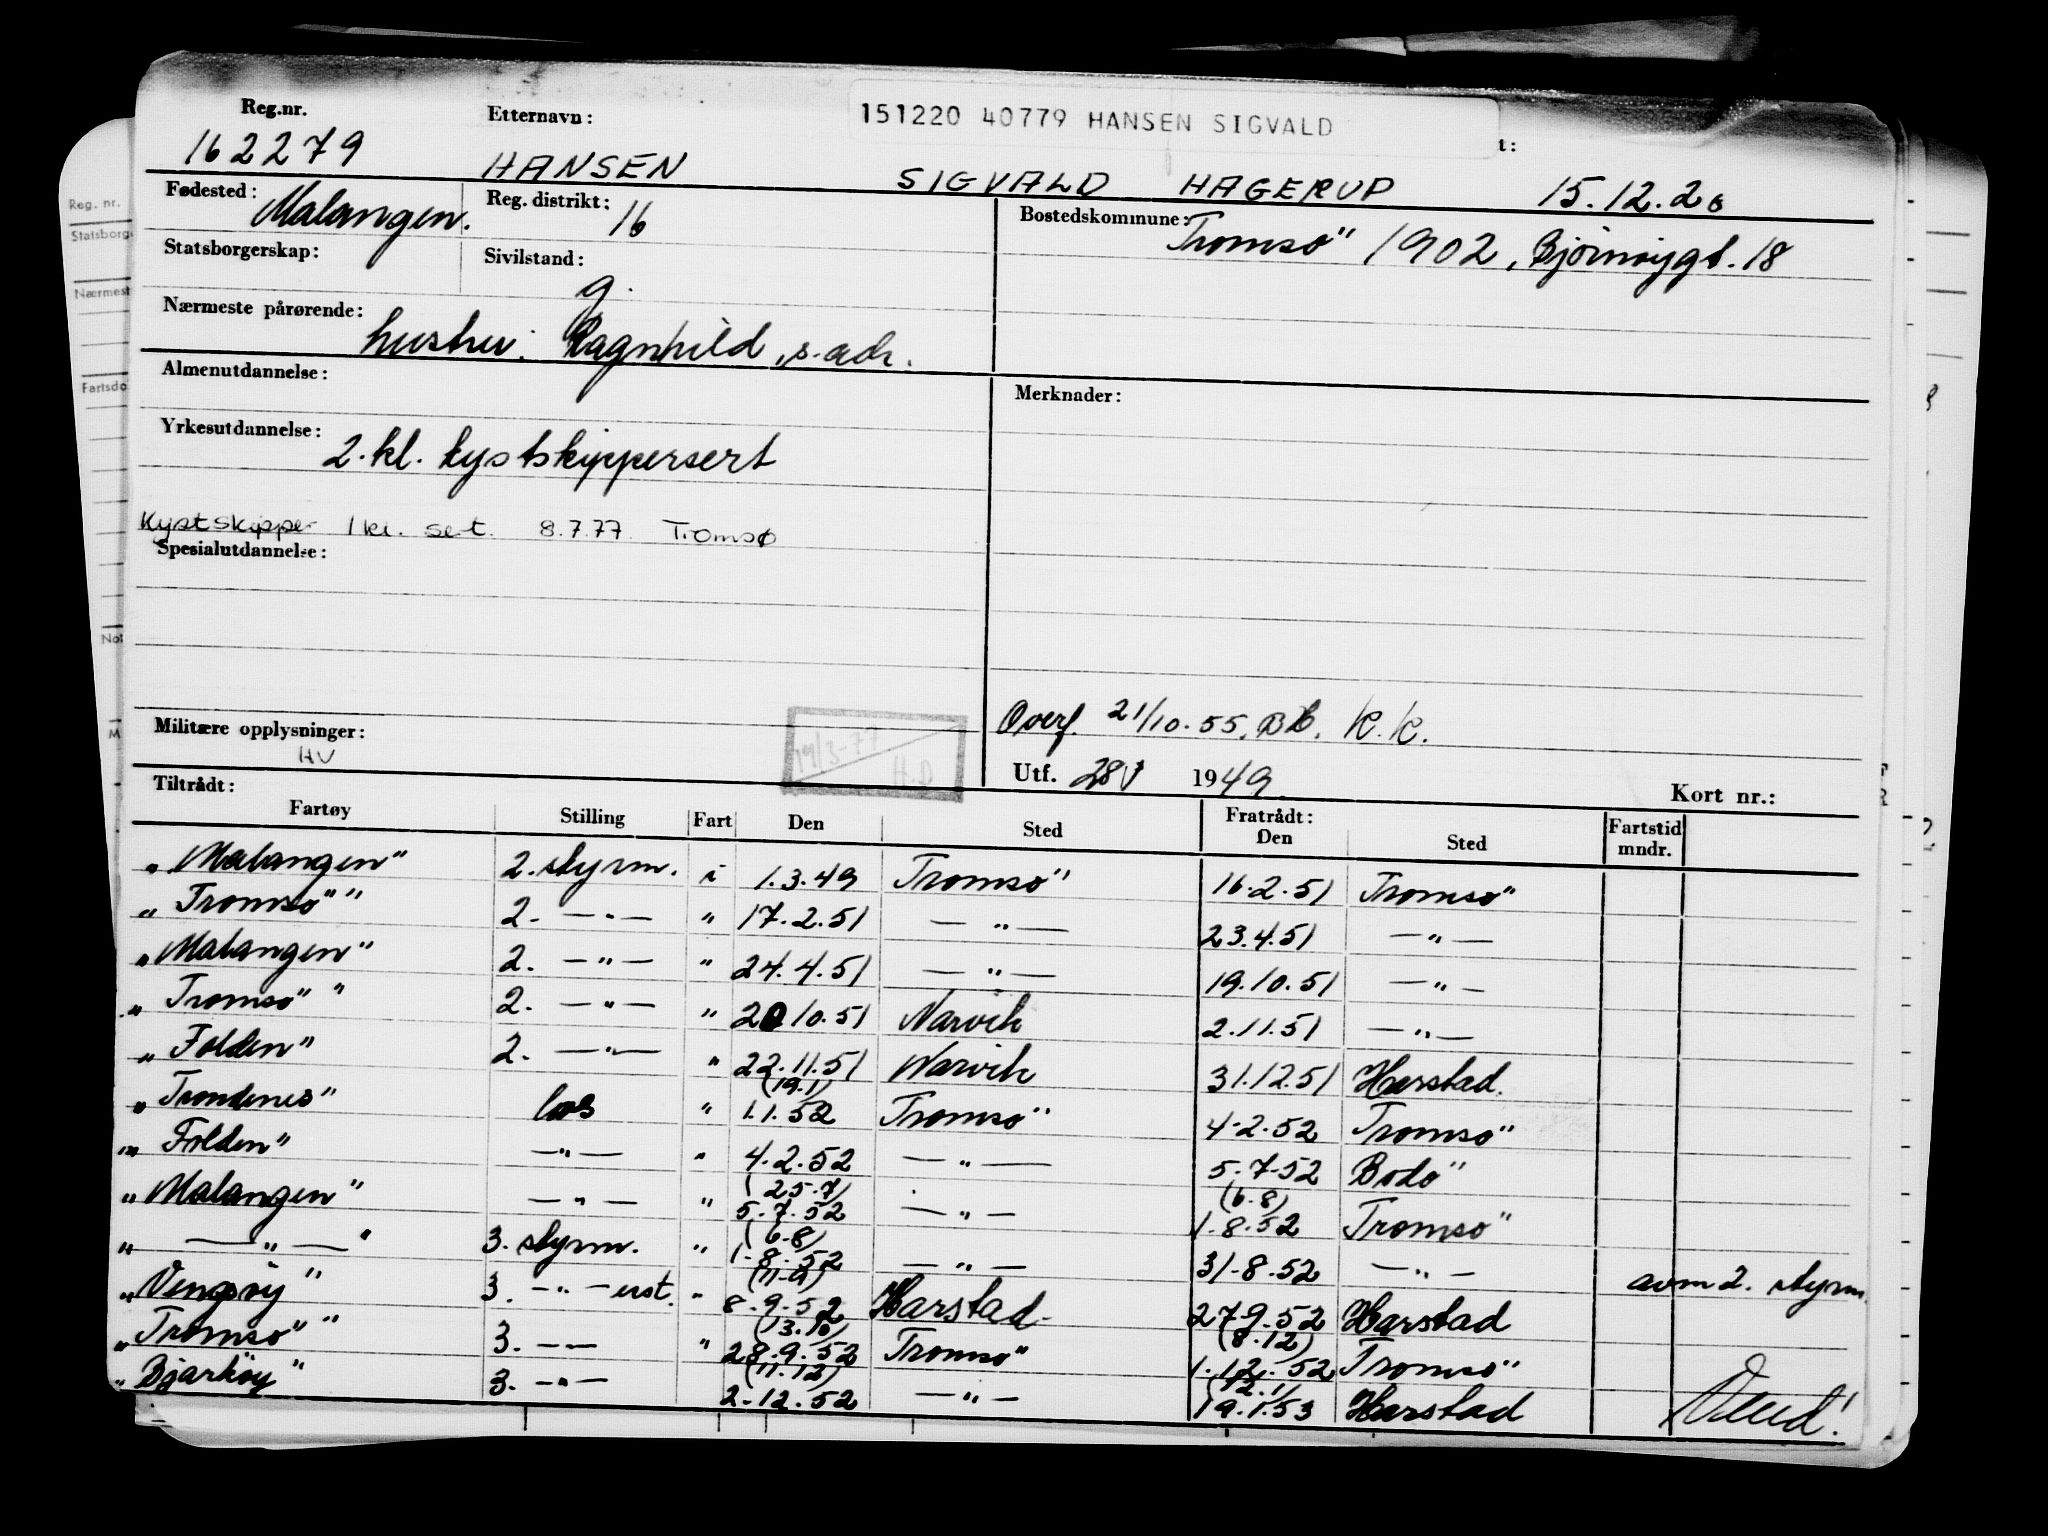 151220 40779 HANSEN SIGVALD
Reg.nr. Etternavn: t:
162279 HANSEN SIGVALD HAGERUP 15.12.20
Fødested: Malangen. Reg. distrikt: 16 Bostedskommune: Tromsö 1902, Bjørnøygt. 18
Statsborgerskap: Sivilstand: g.
Nærmeste pårørende: hustru: Ragnhild, s. adr.
Almenutdannelse: Merknader:
Yrkesutdannelse: 2. kl. kystskippersert
Kystskipper 1 kl. sert. 8.7.77 Tromsø
Spesialutdannelse:
Overf. 21/10.55. BL. K.K.
Militære opplysninger: HV
19/3-77 H.D
Utf. 28/1 1949 Kort nr.:
Tiltrådt: Fratrådt:
Fartøy Stilling Fart Den Sted Den Sted Fartstid mndr.
"Malangen" 2. styrm. i 1.3.49 Tromsö 16.2.51 Tromsö
"Tromsö" 2. — " — " 17.2.51 — " — 23.4.51 — " —
"Malangen" 2. — " — " 24.4.51 — " — 19.10.51 — " —
"Tromsö" 2. — " — " 20.10.51 Narvik 2.11.51 — " —
"Folden" 2. — " — " 22.11.51 Narvik 31.12.51 Harstad.
"Trondenes" los " (19.1) 1.1.52 Tromsö 4.2.52 Tromsö
"Folden" — " — " 4.2.52 — " — 5.7.52 Bodö
"Malangen" — " — " (25.7) 5.7.52 — " — (6.8) 1.8.52 Tromsö
" — " — " 3. styrm. " (6.8) 1.8.52 — " — 31.8.52 — " — avm 2. styrm.
"Vengsöy" 3. — " — " (11.9) 8.9.52 Harstad 27.9.52 Harstad
"Tromsö" 3. — " — " (13.10) 28.9.52 Tromsö (8.12) 1.12.52 Tromsö
"Bjarköy" 3. — " — (11.12) 2.12.52 — " — (12.1) 19.1.53 Harstad
Vend!
Reg. nr.
Statsborge
Nærmest
Fartsdo
Not
M